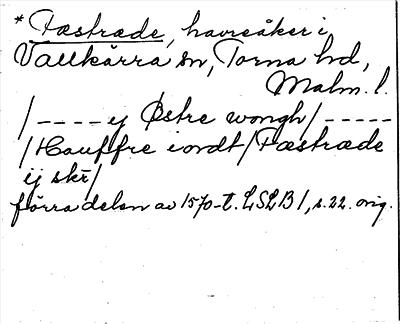 * Fæstræde, havreåker i
Vallkärra sn, Torna hd,
Malm. l.
/---- ij Østre wongh/-----
/Hauffre iordt/Fæstræde
ij skr/
förra delen av 1570-t. LSLB 1, s. 22. orig.